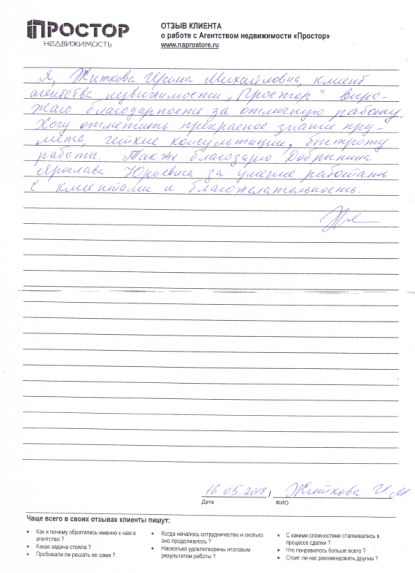 ПРОСТОР
НЕДВИЖИМОСТЬ
ОТЗЫВ КЛИЕНТА
о работе с Агентством недвижимости «Простор»
www.naprostore.ru
Я, Житкова Ирина Михайловна, клиент
агентства недвижимости „Простор" выра-
жаю благодарность за отличную работу.
Хочу отметить прекрасное знание пред-
мета, четкие консультации, быстроту
работы. Также благодарю Добрынина
Ярослава Юрьевича за умение работать
с клиентами и благожелательность.
16.05.2018, Житкова И М
Дата ФИО
Чаще всего в своих отзывах клиенты пишут:
• Как и почему обратились именно к нам в агентство ?
• Какая задача стояла ?
• Пробовали ли решать ее сами ?
• Когда началось сотрудничество и сколько оно продолжалось ?
• Насколько удовлетворены итоговым результатом работы ?
• С какими сложностями сталкивались в процессе сделки ?
• Что понравилось больше всего ?
• Стоит ли нас рекомендовать другим ?